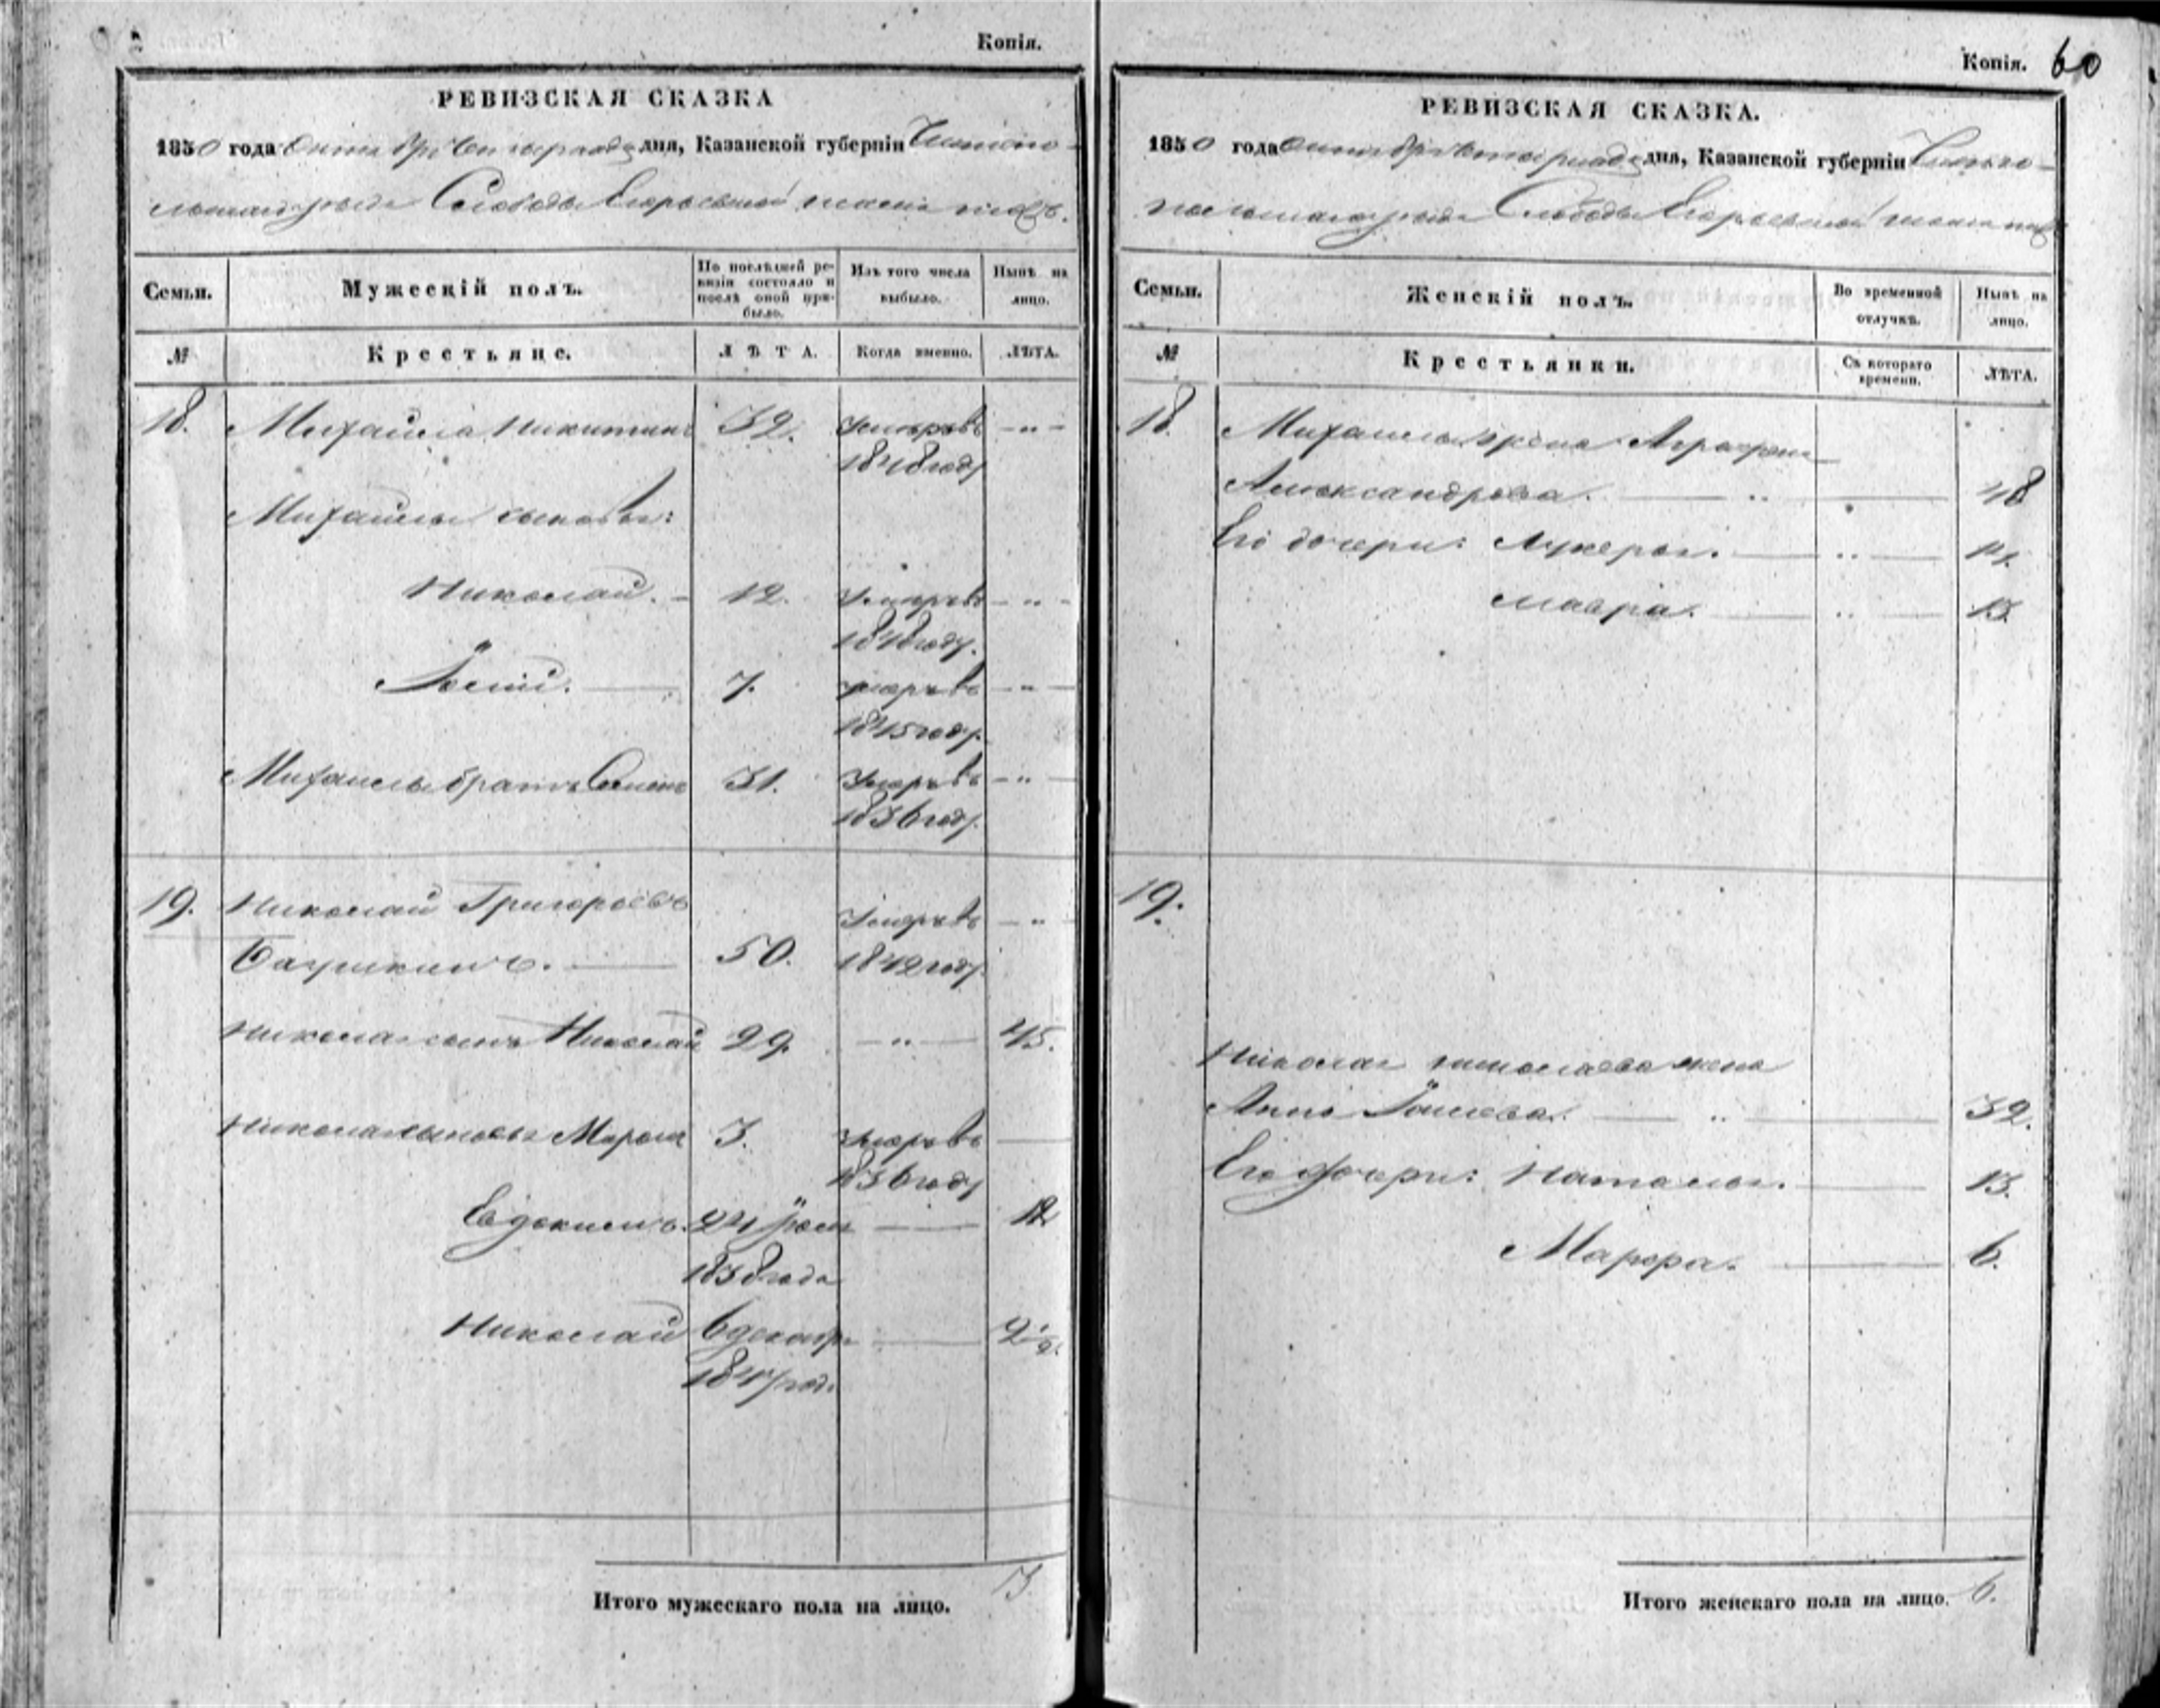 Копія.
РЕВИЗСКАЯ СКАЗКА
1850 года Октября дня, Казанской губерніи Чистопо-
льскаго уѣзда Слободы Егорьевской
Семьи.
Мужескій полъ.
По послѣдней ре-
визіи состояло и
послѣ оной при-
было.
Изъ того числа
выбыло.
Нынѣ на
лицо.
№
Крестьяне.
ЛѢТА.
Когда именно.
ЛѢТА.
18. Михайла Никитинъ 32. Умеръ въ - " -
1848 году
Михайлы сыновья:
Николай. - 12. Умеръ въ - " -
1848 году.
7. умеръ въ - " -
1845 году.
Михайлы братъ Семенъ 31. Умеръ въ - " -
1836 году.
19. Николай Григорьевъ Умеръ въ - "
50. 1842 году.
Николая сынъ Николай 29. - " - 45.
Николая сыновья 3. Умеръ въ
1836 году
Евдокимъ. 24 Іюля 12
1838 года
Николай 6 декабр 2 1/2.
1847 год.
Итого мужескаго пола на лицо. 3
Копія. 60
РЕВИЗСКАЯ СКАЗКА.
1850 года Октября дня, Казанской губерніи Чисто-
польскаго уѣзда Слободы Егорьевской
Семьи.
Женскій полъ.
Во временной
отлучкѣ.
Нынѣ на
лицо.
№
Крестьянки.
Съ котораго
времени.
ЛѢТА.
18. Михайлы жена Аграфена
Александрова. " 48
Его дочери: Лукерья. " 14.
Мавра. " 13.
19.
Николая Николаева жена
Анна " 32.
Его дочери: Наталья. 13.
Марфа. 6.
Итого женскаго пола на лицо. 6.